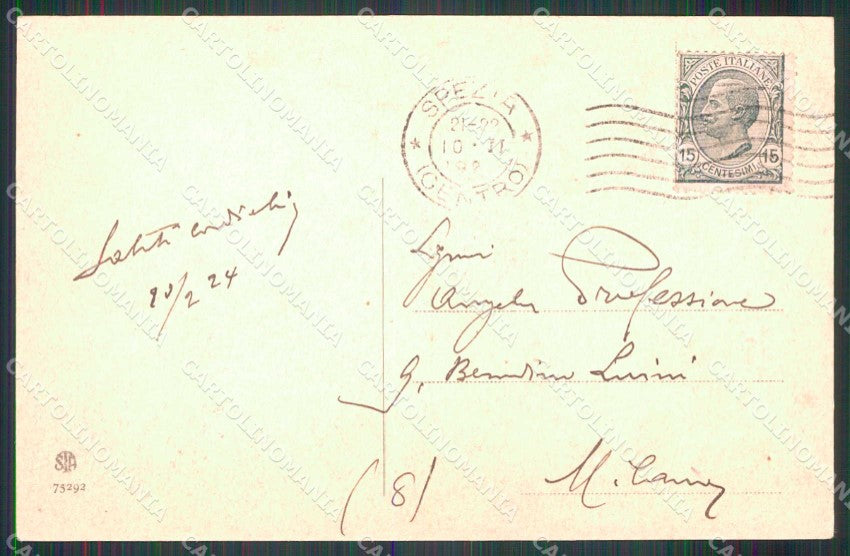 SPEZIA
21-22
10·II
192
(CENTRO)
POSTE ITALIANE
15 15
CENTESIMI
Saluti cordiali
20/2 24
Signori
Angelo Professione
9, Bernardino Luini
Milano
(8)
SIA
75292
CARTOLINOMANIA